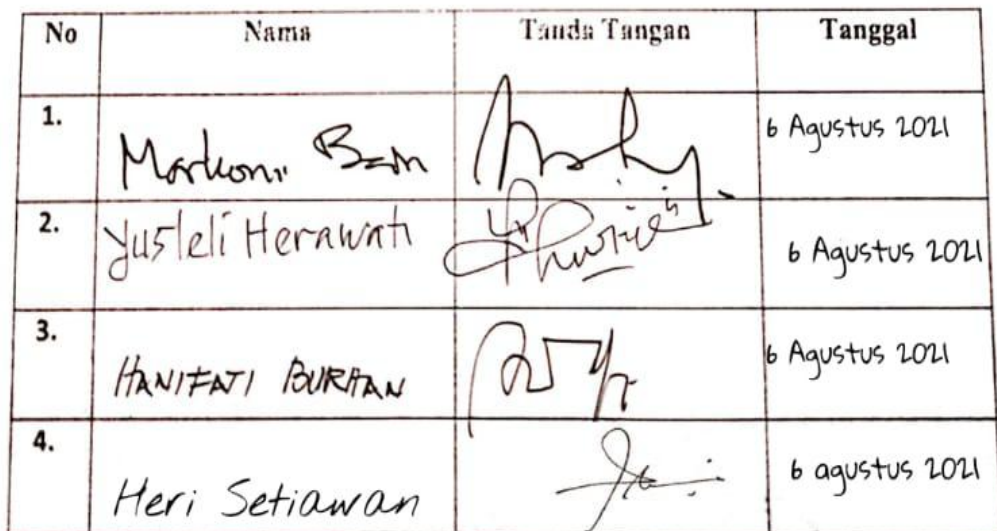 No Nama Tanda Tangan Tanggal
1. Markoni 6 Agustus 2021
2. Yusleli Herawati 6 Agustus 2021
3. HANIFATI BURHAN 6 Agustus 2021
4. Heri Setiawan 6 agustus 2021